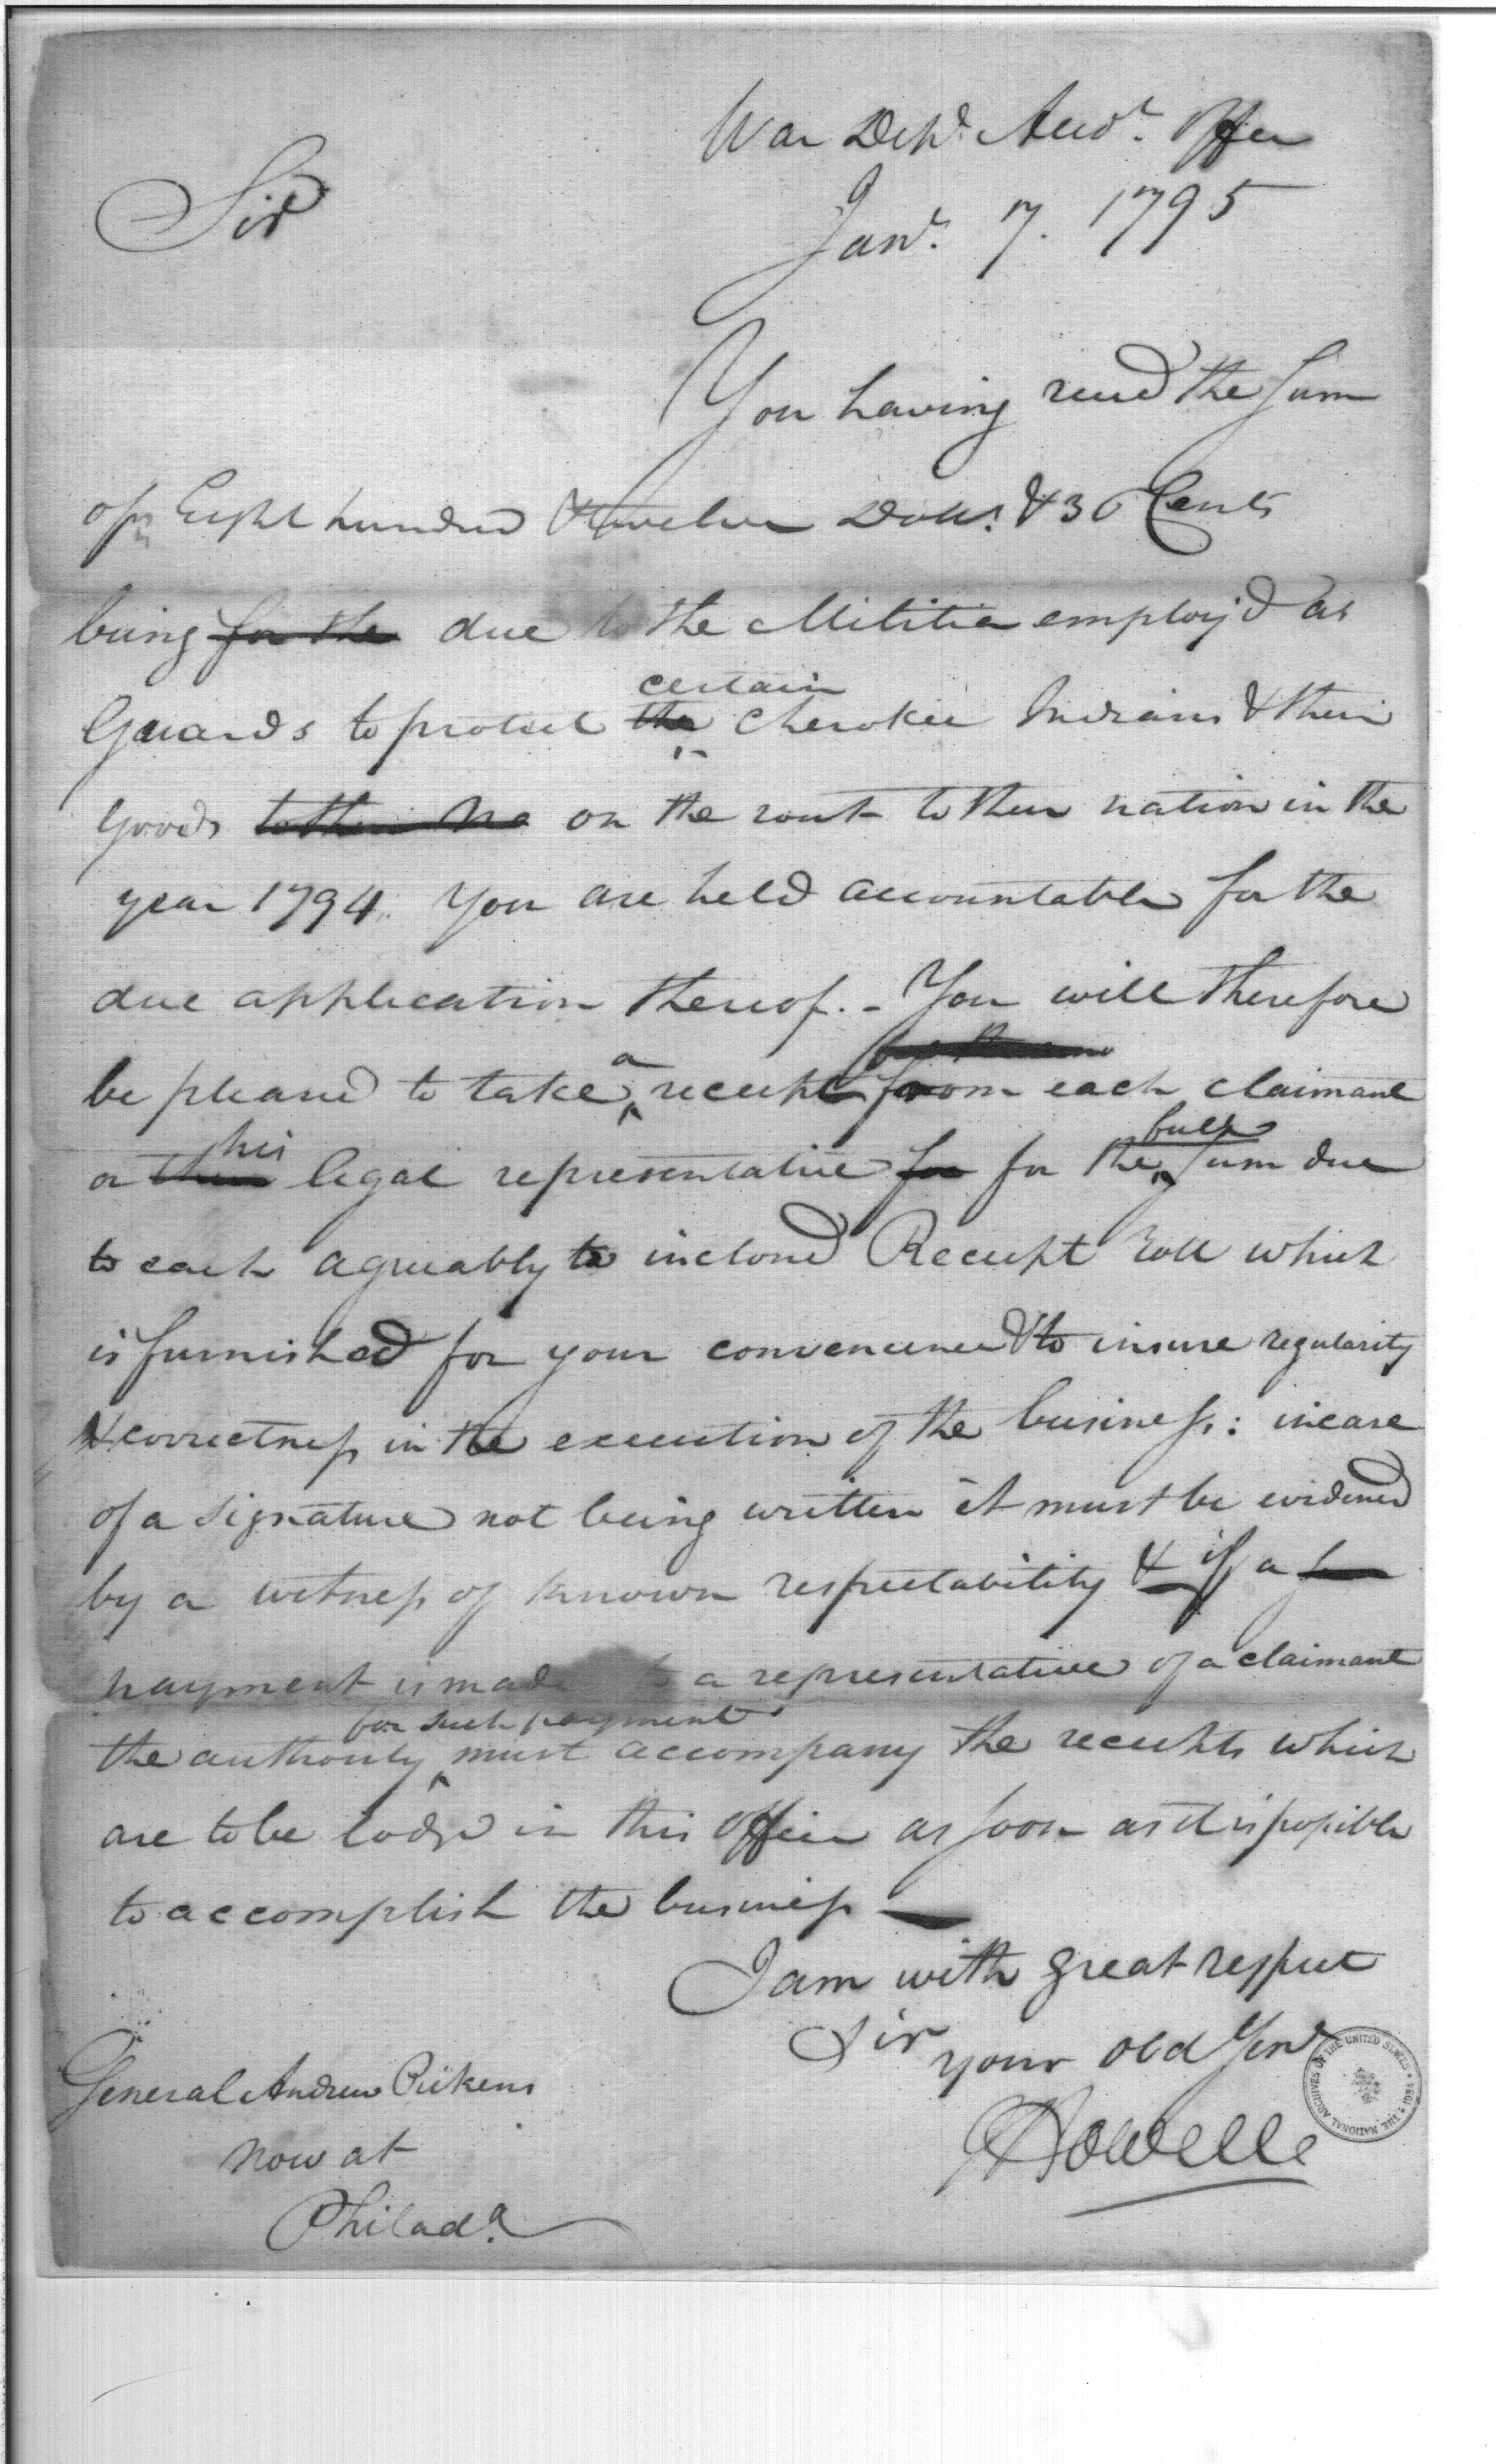 War Dept. Accts. Office
Jany. 7. 1795
Sir
You having recd the Sum
of Eight hundred & twelve Dolls. & 36 Cents
being for the due to the Militia employ'd as
certain
Guards to protect the Cherokee Indians & their
Goods to their na on the rout to their nation in the
year 1794. You are held accountable for the
due application thereof. - You will therefore
a
be pleased to take receipt from each claimant
his full
or their legal representative for for the Sum due
to each agreeably to inclosed Receipt roll which
is furnished for your convenience & to insure regularity
& correctness in the execution of the business: in case
of a signature not being written it must be evidenced
by a witness of known respectability & if a
payment is made to a representative of a claimant
for such payment
the authority must accompany the receipts which
are to be lodged in this Office as soon as it is possible
to accomplish the business
I am with great respect
Sir your Obd Servt
J Howell
General Andrew Pickens
now at
Philada.
THE NATIONAL ARCHIVES OF THE UNITED STATES 1934